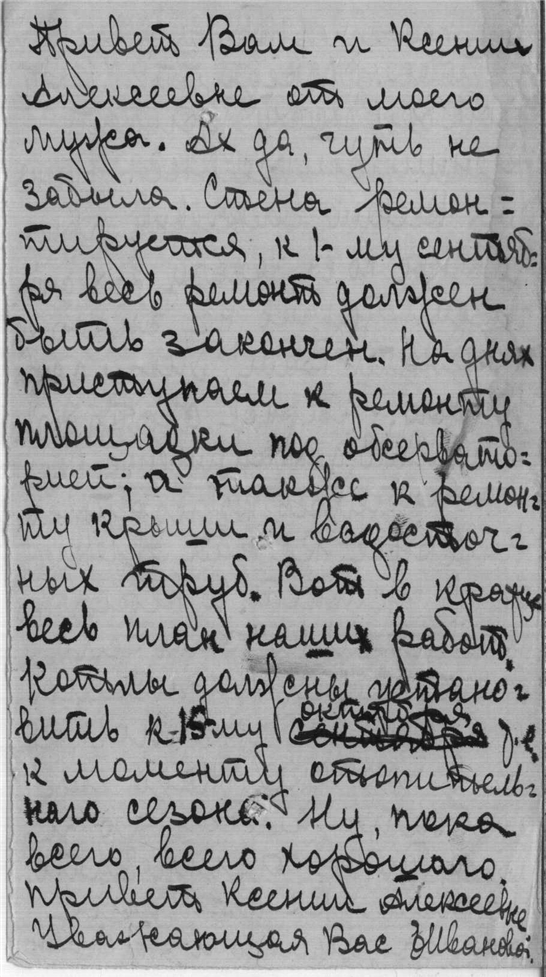 Привет Вам и Ксении
Алексеевне от моего
мужа. Ах да, чуть не
забыла. Стена ремон=
тируется, к 1-му сентяб=
ря весь ремонт должен
быть закончен. На днях
приступаем к ремонту
площадки под обсервато=
рией; а также к ремон=
ту крыши и водосточ=
ных труб. Вот в кратце
весь план наших работ.
Котлы должны устано=
вить к 15-му октября
сентября
к моменту отопитель=
ного сезона. Ну, пока
всего, всего хорошаго.
Привет Ксении Алексеевне
Уважающая Вас Иванова.